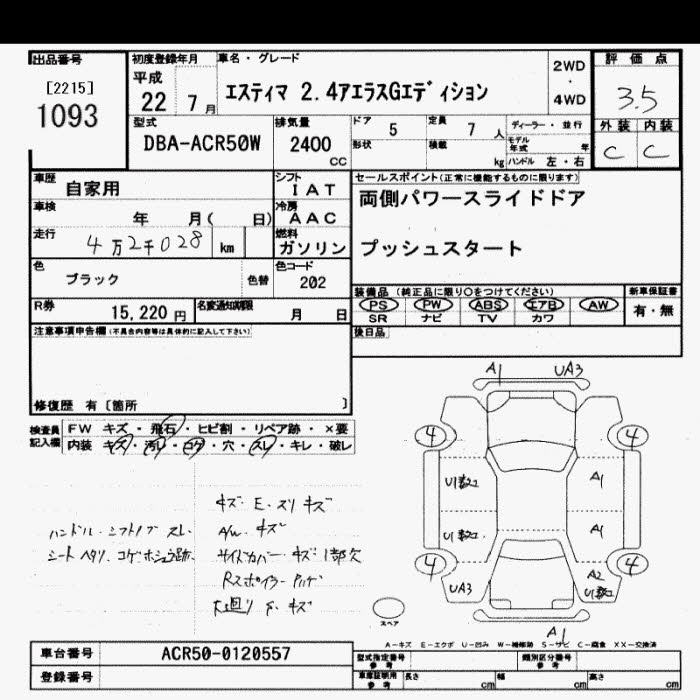 出品番号 初度登録年月 車名・グレード 2WD・4WD 評価点
[2215]
1093
平成
22 7月
エスティマ 2.4アエラスGエディション
3.5
型式 排気量 ドア 5 定員 7人 ディーラー・並行 外装 内装
DBA-ACR50W 2400cc 形状 積載 kg モデル年式 年 ハンドル 左・右 C C
車歴 自家用 シフト IAT セールスポイント(正常に機能するものに限ります)
車検 年 月( 日) 冷房 AAC 両側パワースライドドア
走行 4万2千028 km 燃料 ガソリン プッシュスタート
色 ブラック 色替 色コード 202
装備品 (純正品に限り○をつけてください) 新車保証書
PS PW ABS エアB AW 有・無
SR ナビ TV カワ
R券 15,220円 名変通知期限 月 日
後日品
注意事項申告欄(不具合内容等は具体的に記入して下さい)
修復歴 有〔箇所 〕
検査員記入欄 FW キズ・飛石・ヒビ割・リペア跡・×要
内装 キズ・汚レ・コゲ・穴・スレ・キレ・破レ
A1 UA3
4 4
U1 A1
U1 A1
4 4
UA3 A2
U1
A1
スペア
キズ・E・スリキズ
ハンドル・シフトノブ スレ A/W キズ
シート ヘタリ コゲホシュウ跡 サイドカバー キズ 1部欠
Rスポイラー
下廻り S キズ
A−キズ E−エクボ U−凹み W−補修跡 S−サビ C−腐食 XX−交換済
車台番号 ACR50-0120557 型式指定番号 参考 類別区分番号 参考
登録番号 車庫証明用 参考 長さ cm 幅 cm 高さ cm